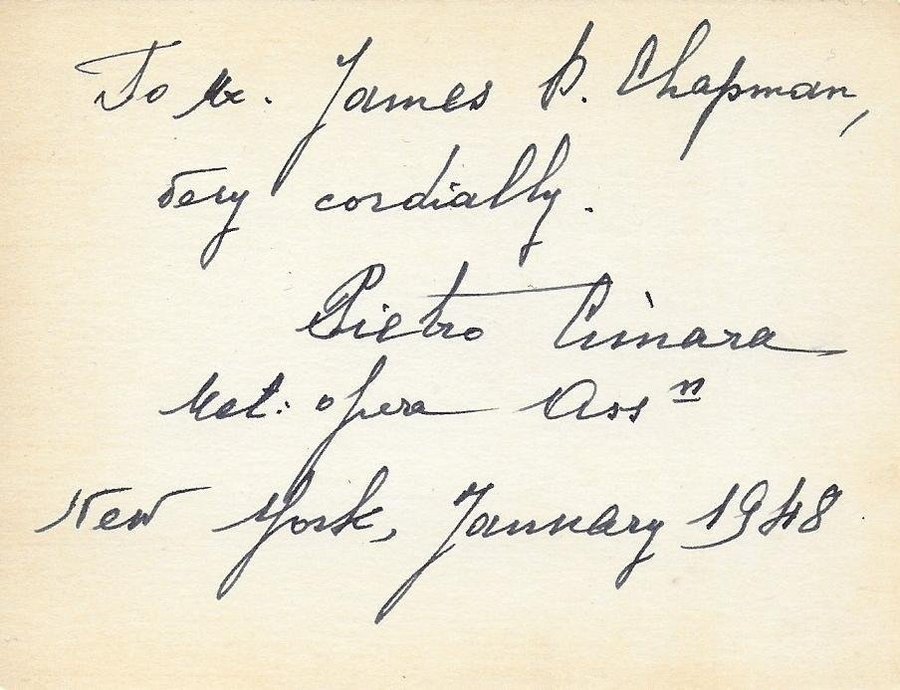 To Mr. James P. Chapman,
very cordially.
Pietro Cimara
Met. opera Assⁿ
New York, January 1948